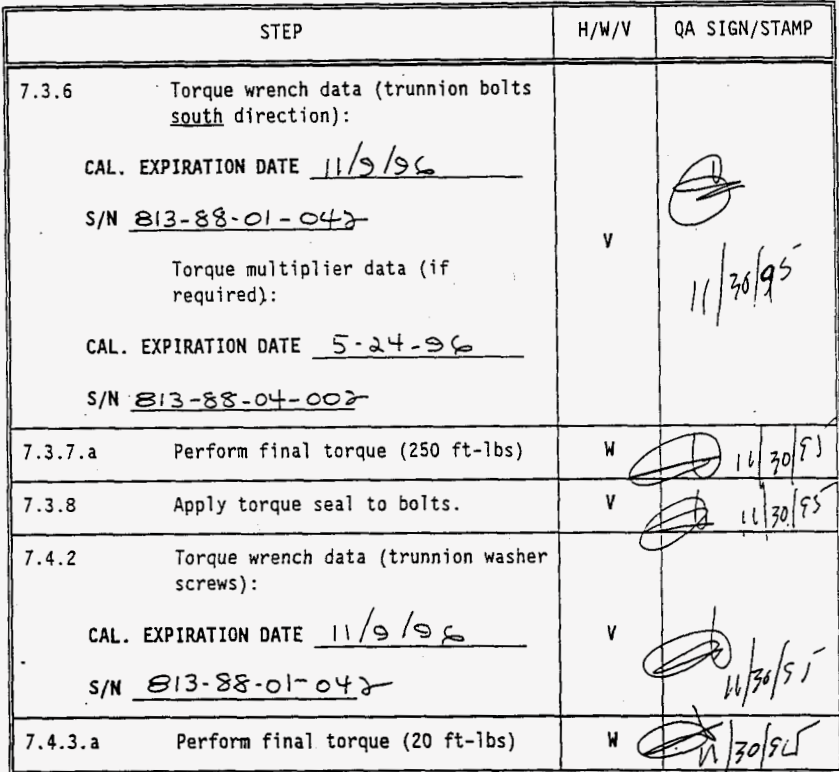 STEP H/W/V QA SIGN/STAMP
7.3.6 Torque wrench data (trunnion bolts
south direction):
CAL. EXPIRATION DATE 11/9/96
S/N 813-88-01-042
V
11/30/95
Torque multiplier data (if
required):
CAL. EXPIRATION DATE 5-24-96
S/N 813-88-04-002
7.3.7.a Perform final torque (250 ft-lbs) W 11/30/95
7.3.8 Apply torque seal to bolts. V 11/30/95
7.4.2 Torque wrench data (trunnion washer
screws):
CAL. EXPIRATION DATE 11/9/96 V
S/N 813-88-01-042 11/30/95
7.4.3.a Perform final torque (20 ft-lbs) W 11/30/95